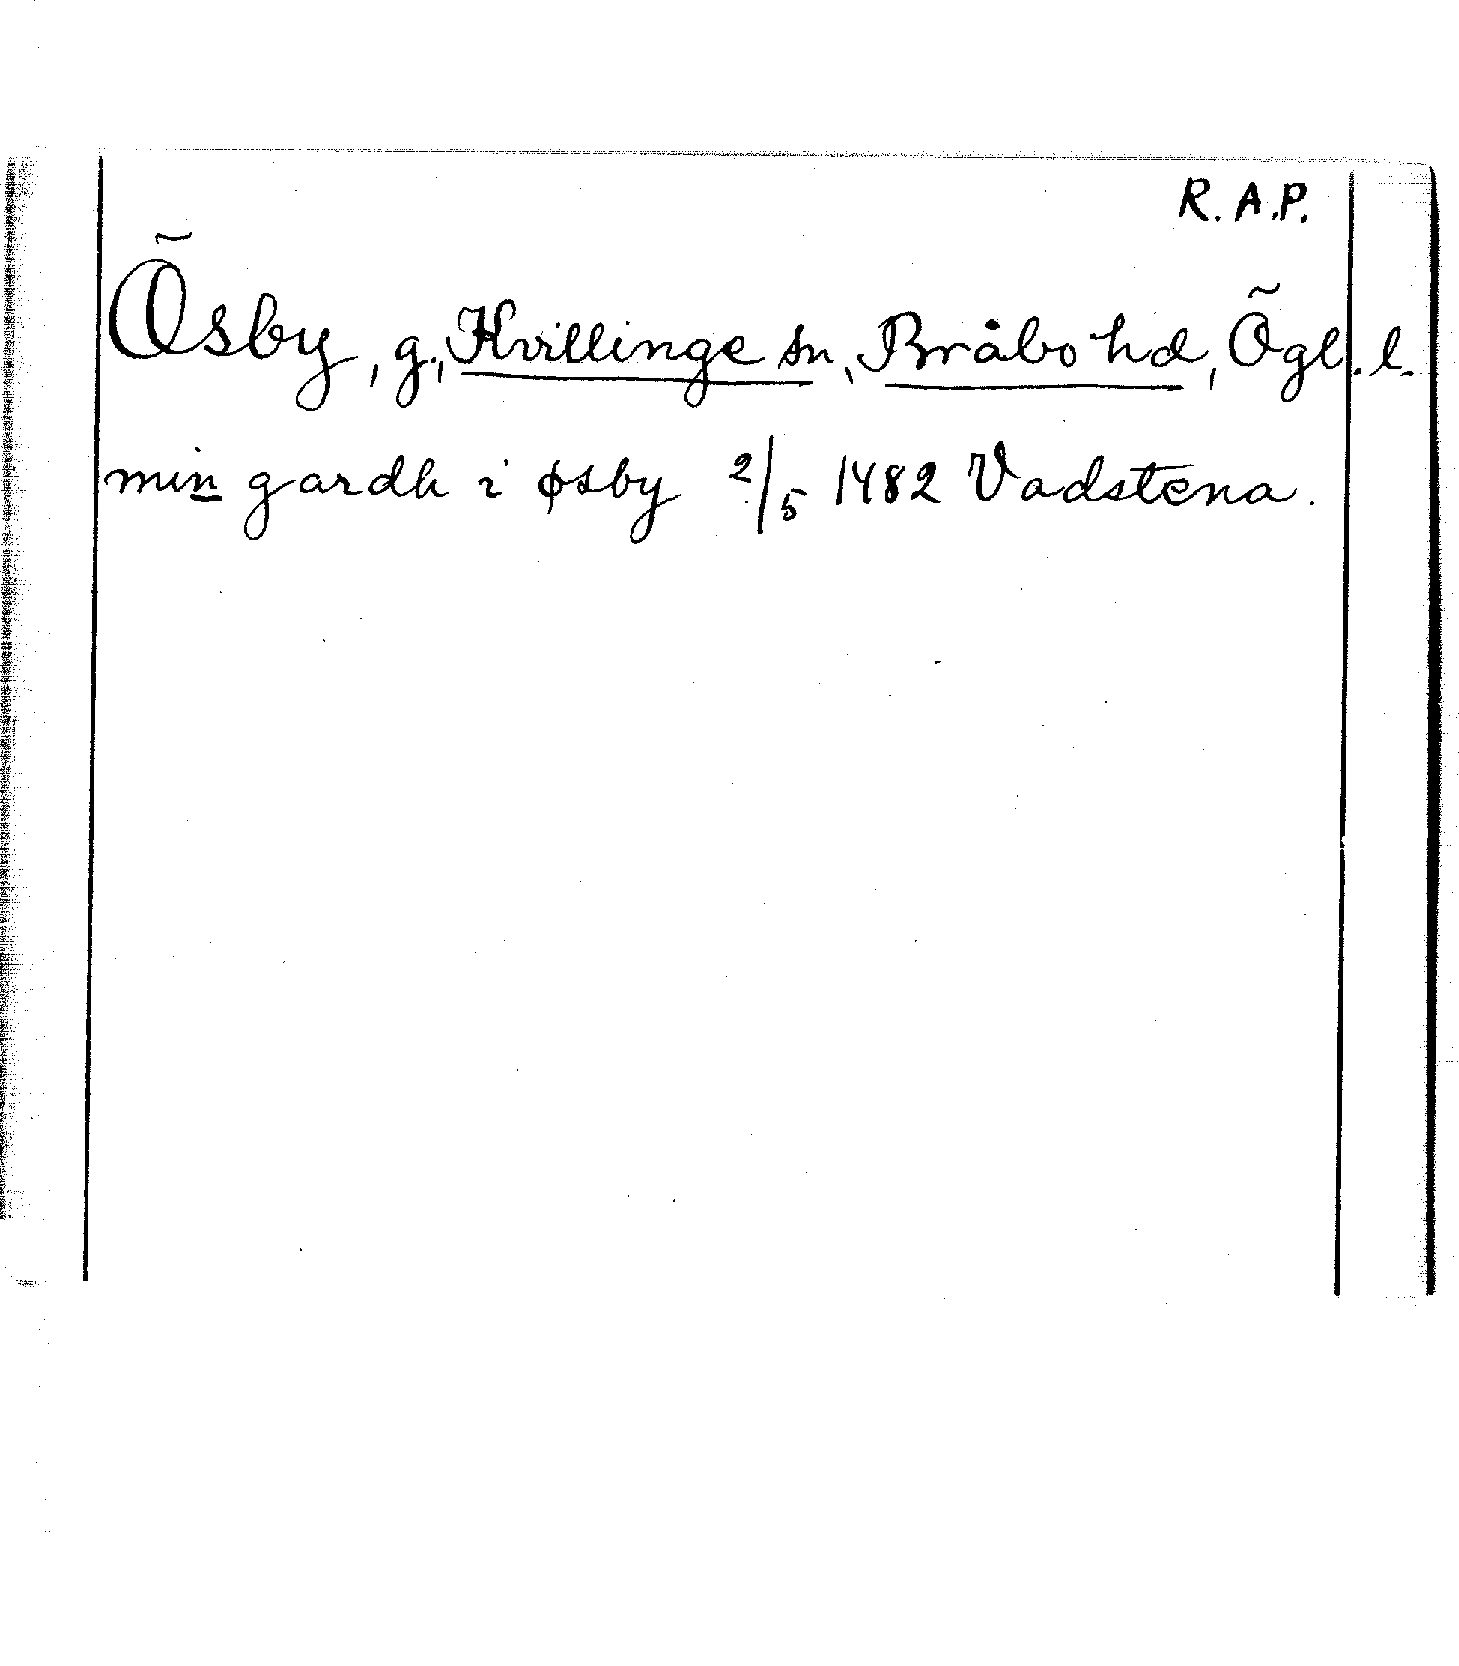 R.A.P.
Ösby, g., Kvillinge sn, Bråbo hd, Ögl. l.
min gardh i øsby 2/5 1482 Vadstena.